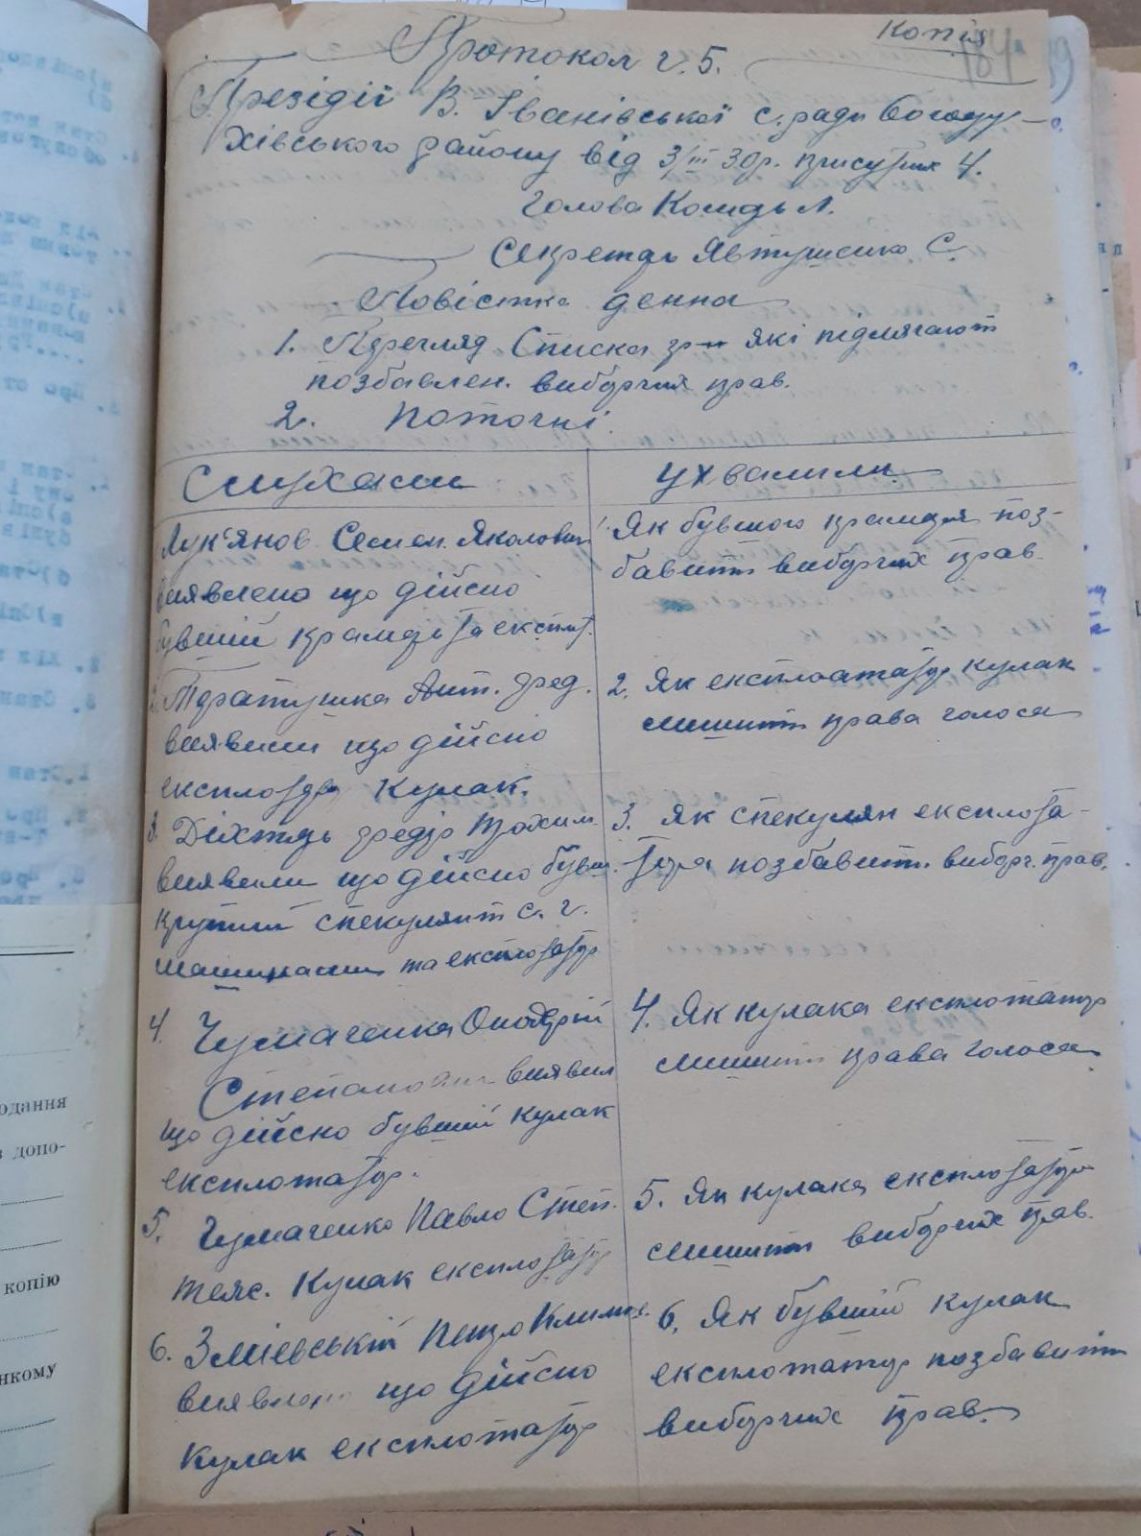 Копія
184
Протокол ч. 5.
Президії В. Іванівської с. ради Богоду-
хівського району від 3/III 30р. присутніх 4.
Голова Комдь Л.
Секретарь Явтушенко С.
Повістка денна
1. Перегляд Списка гр-н які підлягают
позбавлен. виборчих прав.
2. Поточні.
Слухали
Ухвалили
Лук'янов Семен Яколович
виявлено що дійсно
бувший крамарь та експлт.
Як бувшого крамаря поз-
бавити виборчих прав.
2. Тератушка Ант. Фед.
виявили що дійсно
експлоататор Кулак.
2. Як експлоататор кулак
лишить права голоса
3. Діхтярь Федір Трохим.
виявили що дійсно бувш.
крупний спекулянт с. г.
машинами та експлотатор
3. Як спекулян експлота-
тора позбавити виборч. прав.
4. Чумаченка Андрій
Степанович виявил
що дійсно бувший кулак
експлотатор.
4. Як кулака експлотатор
лишить права голоса
5. Чумаченко Павло Степ.
теж. Кулак експлотатор
5. Як кулака експлотатора
лишити виборчих прав.
6. Зміевській Петро Климов.
виявлено що дійсно
Кулак експлотатор
6. Як бувший кулак
експлотатор позбавить
виборчих прав.
одання
з допо-
копію
нкому